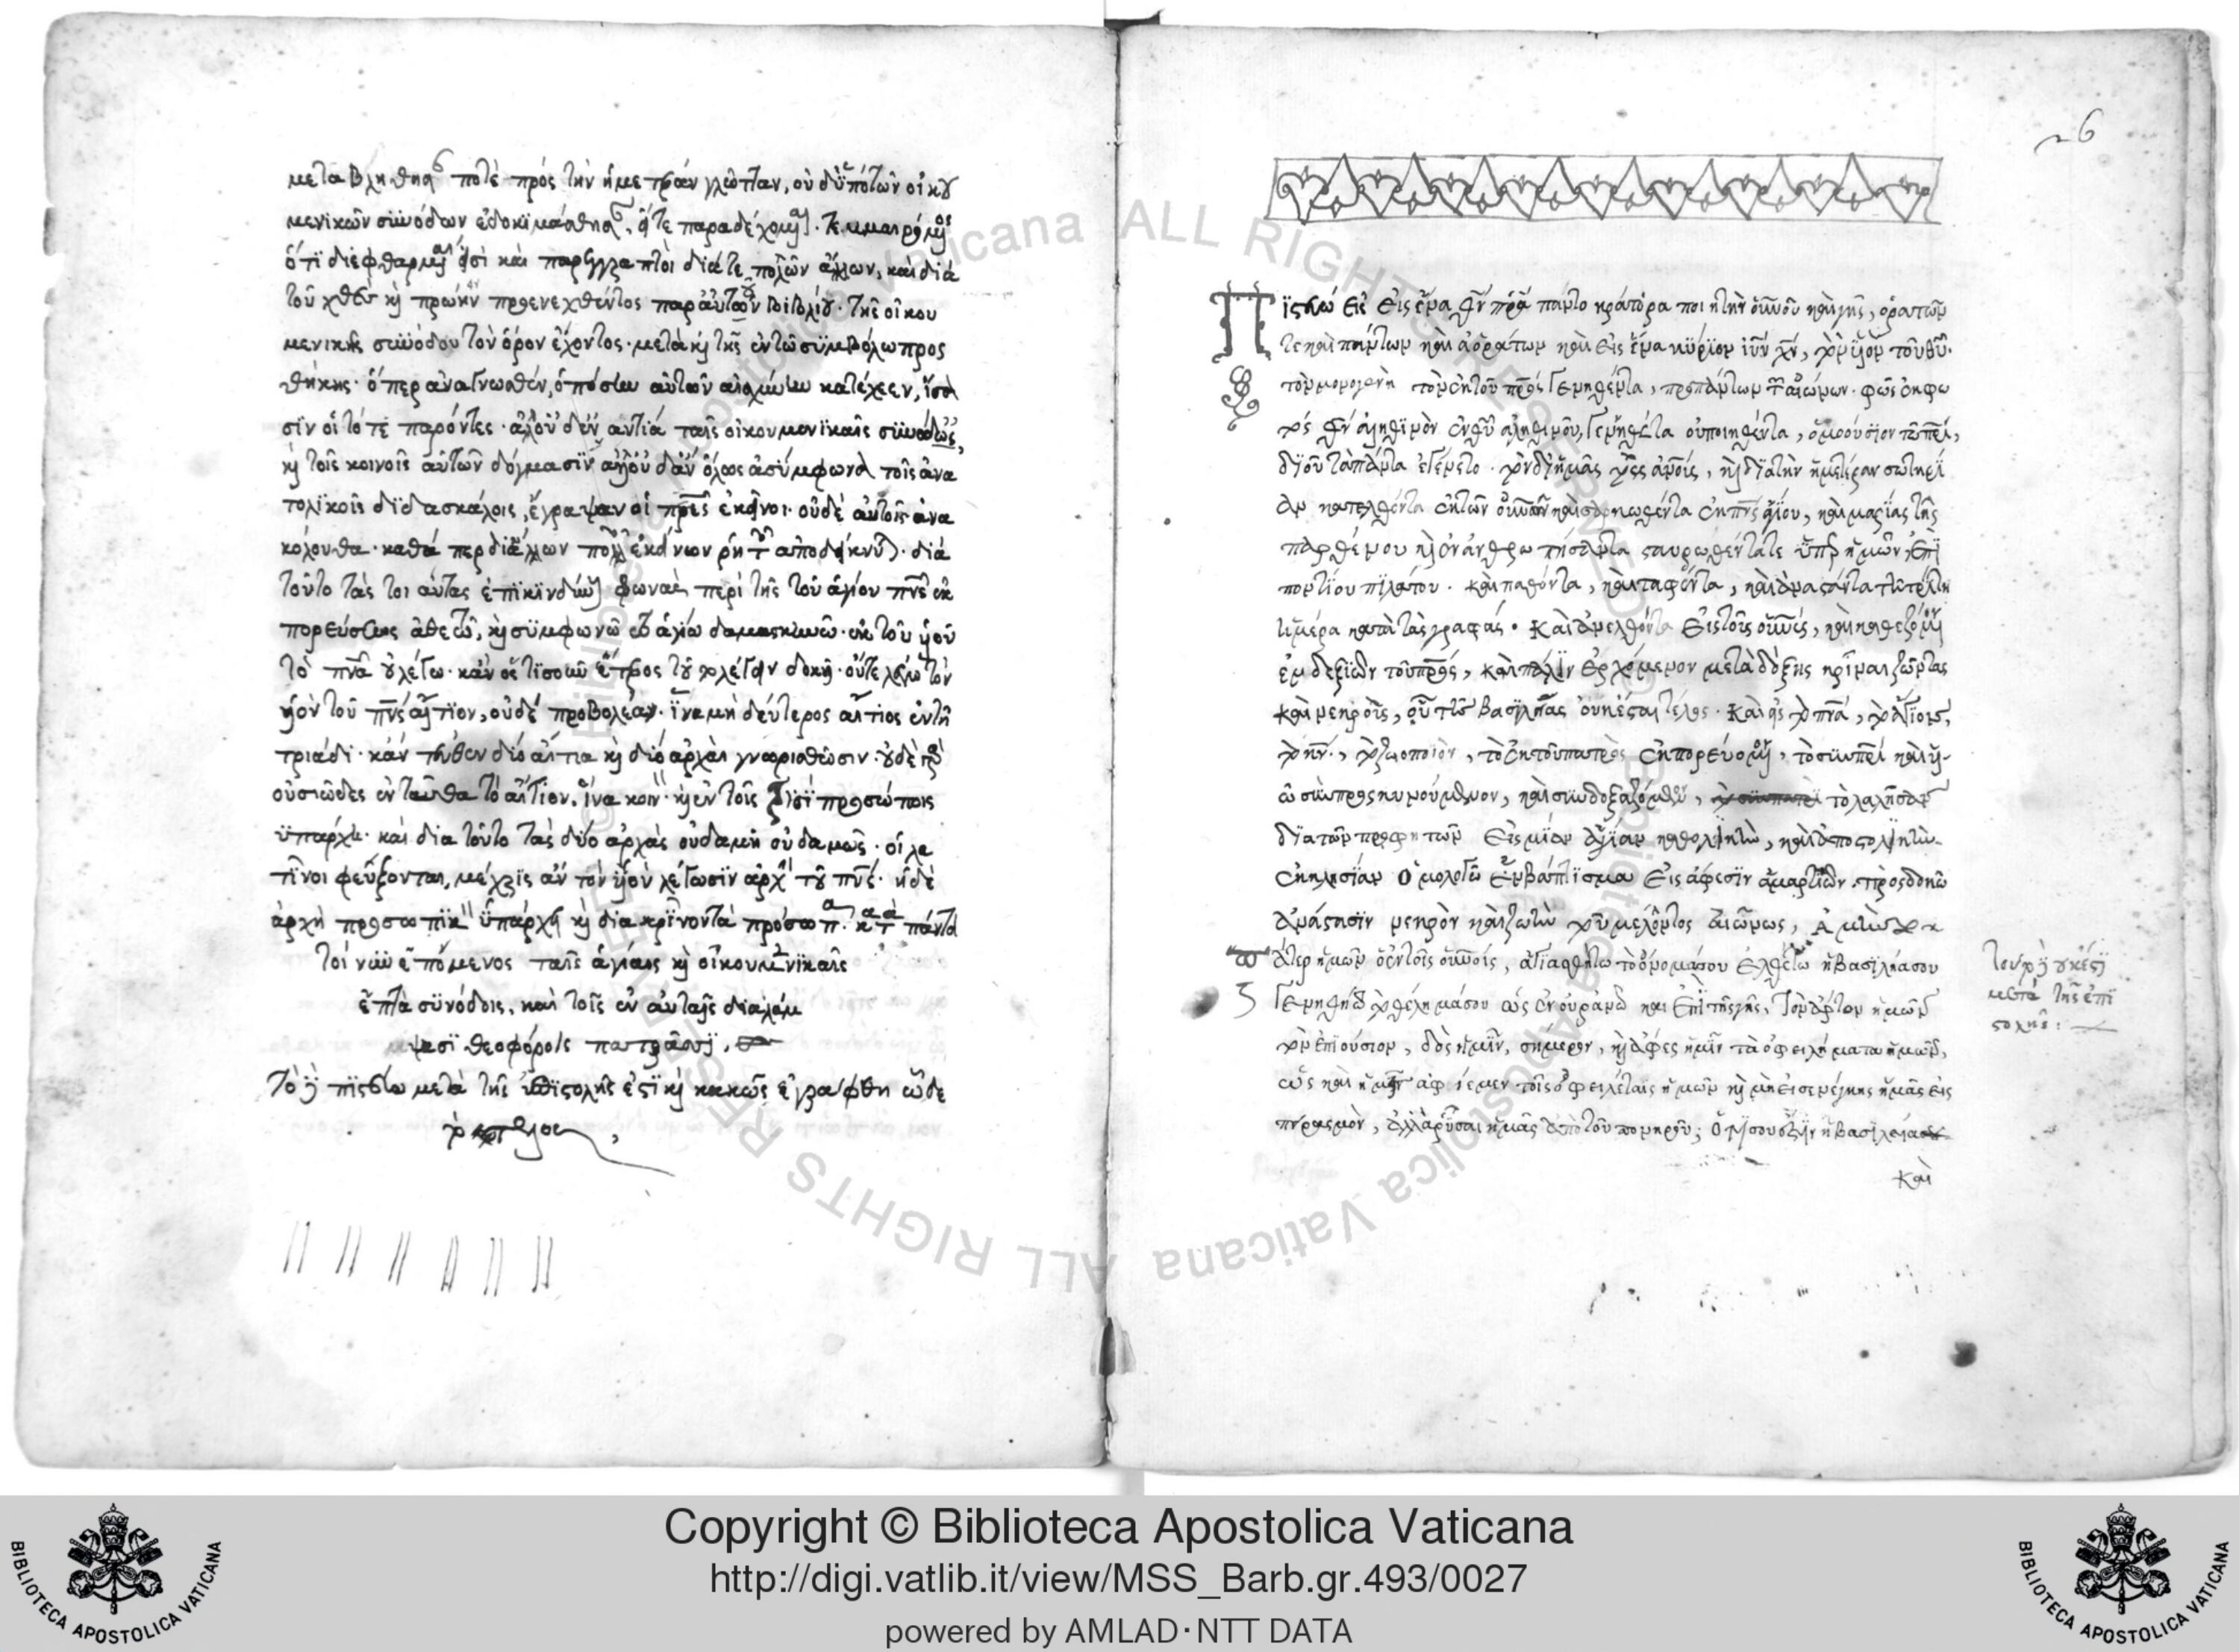 μεταβληθησ ποτὲ πρός τὴν ἡμετέραν γλῶτταν, οὐδ' ὑπὸ τῶν οἰκου
μενικῶν συνόδων ἐδοκιμάσθησ
ὅτι διεφθαρμ εἰσὶ καὶ παρέγγραπτοι διά τε πολλῶν ἄλλων, καὶ διά
τοῦ χθὲς κ πρώην προενεχθέντος παρ' αὐτῶν βιβλίου· τῆς οἰκου
μενικῆς συνόδου τὸν ὅρον ἔχοντος· μετὰ κ τῆς ἐν τῶ συμβόλω προς
θήκης· ὅπερ ἀναγνωσθέν, ὁπόσην αὐτῶν αἰσχύνην κατέχεεν, ἴσα
σιν οἱ τότε παρόντες· ἀλλ' οὐδὲν αντιά ταῖς οἰκουμενικαῖς συνόδοις,
κ τοῖς κοινοῖς αὐτῶν δόγμασϊν ὅλως ἀσύμφωνα τοῖς ἀνα
τολϊκοῖς διδασκάλοις, ἔγραψαν οἱ πρες ἐκεῖνοι· οὐδὲ αὐτοῖς ἀνα
κόλουθα· καθά περ δι' ἄλλων πολλ ἐκείνων ῥητ αποδείκνυ· διά
τοῦτο τὰς τοιαύτας ἐπικινδ φωνὰς περὶ τῆς τοῦ ἁγίου πνς ἐκ
πορεύσεως ἀθετῶ, κ συμφωνῶ τῶ ἁγίω δαμασκηνῶ· ἐκ τοῦ υἱοῦ
τὸ πνα οὐ λέγω· κἂν ὅστισοῦν ἕτερος τοῦτο λέγειν δοκῆ· οὔτε λέγω τὸν
υἱὸν τοῦ πνς αἴτιον, οὐδὲ προβολέαν· ἵνα μὴ δεύτερος αἴτιος ἐν τῆ
τριάδι· κἀντεῦθεν δύο αἴτια κ δύο αρχαὶ γνωρισθῶσιν· οὐδὲ
οὐσιῶδες ἐνταῦθα τὸ αἴτιον, ἵνα κοιν κ ἐν τοῖς τρισὶ προσώποις
ὑπάρχη· καὶ δια τοῦτο τὰς δύο ἀρχὰς οὐδαμῆ οὐδαμῶς· οἱ λα
τῖνοι φεύξονται, μέχρις ἂν τὸν υἱὸν λέγωσιν ἀρχ τοῦ πνς· ἡ δὲ
ἀρχὴ προσωπικ ὑπάρχει κ διακρίνοντα πρόσωπ· κτ πάντα
τοίνυν ἑπόμενος ταῖς ἁγίαις κ οἰκουμενικαῖς
ἑπτὰ συνόδοις, καὶ τοῖς ἐν αὐταῖς διαλάμ
ψασι θεοφόροις πατράσι,
πιστεύω μετὰ τῆς ἐπιστολῆς ἐστὶ κ κακῶς ἐγράφθη ὧδε
26
Πιστεύω εἰς ἕνα θν πρα παντοκράτορα ποιητὴν οὐνοῦ καὶ γῆς, ὁρατῶν
τε καὶ πάντων καὶ ἀοράτων καὶ εἰς ἕνα κύριον ιυν χν, τὸν υἱὸν τοῦ θυ·
τὸν μονογενῆ τὸν ἐκ τοῦ προς γεννηθέντα, προ πάντων τ αἰώνων· φῶς ἐκ φω
τός θν ἀληθινὸν ἐκ θυ αληθινοῦ, γεννηθέντα οὐ ποιηθέντα, ὁμοούσιον τῶ πρι,
δι' οὗ τὰ πάντα ἐγένετο· τὸν δι' ἡμᾶς τοὺς ανους, κ διὰ τὴν ἡμετέραν σωτηρί
αν κατελθόντα ἐκ τῶν οὐνῶν καὶ σαρκωθέντα ἐκ πνς ἁγίου, καὶ μαρίας τῆς
παρθένου κ ἐνανθρωπήσαντα σταυρωθέντα τε ὑπὲρ ἡμῶν ἐπὶ
ποντίου πιλάτου· καὶ παθόντα, καὶ ταφέντα, καὶ ἀναστάντα τῆ τρίτη
ἡμέρα κατὰ τὰς γραφάς· καὶ ἀνελθόντα εἰς τοὺς οὐνούς, καὶ καθεζόμ
ἐκ δεξιῶν τοῦ προς, καὶ πάλιν ἐρχόμενον μετὰ δόξης κρῖναι ζῶντας
καὶ νεκροὺς, οὗ τῆς βασιλείας οὐκ ἔσται τέλος· καὶ εἰς τὸ πνα, τὸ ἅγιον,
τὸ κν·, τὸ ζωοποιὸν, τὸ ἐκ τοῦ πατρὸς ἐκπορευόμ, τὸ σὺν πρι καὶ υἱ
ῶ συνπροσκυνούμενον, καὶ συνδοξαζόμενον, τὸ λαλῆσαν
διὰ τῶν προφητῶν εἰς μίαν ἁγίαν καθολικὴν, καὶ ἀποστολικὴν
ἐκκλησίαν ὁμολογῶ ἓν βάπτισμα εἰς ἄφεσιν ἁμαρτιῶν. προσδοκῶ
ἀνάστασιν νεκρὸν καὶ ζωὴν τοῦ μέλλοντος αἰῶνος, ἀμὴν
πάτερ ἡμῶν ὁ ἐν τοῖς οὐνοῖς, ἁγιασθήτω τὸ ὄνομά σου ἐλθέτω ἡ βασιλεία σου
γενηθήτω τὸ θέλημά σου ὡς ἐν οὐρανῶ και ἐπὶ τῆς γῆς, τὸν ἄρτον ἡμῶν
τὸν ἐπιούσιον, δὸς ἡμῖν, σήμερον, κ ἄφες ἡμῖν τὰ ὀφειλήματα ἡμῶν,
ὡς καὶ ἡμεῖς ἀφίεμεν τοῖς ὀφειλέταις ἡμῶν κ μὴ εἰσενέγκης ἡμᾶς εἰς
πειρασμὸν, ἀλλὰ ῥῦσαι ἡμᾶς ἀπὸ τοῦ πονηροῦ; ὅτι σοῦ ἐστὶν ἡ βασιλεία
καὶ
τοῦτο οὐκ ἔστι
μετὰ τῆς ἐπι
στολῆς:
Copyright © Biblioteca Apostolica Vaticana
http://digi.vatlib.it/view/MSS_Barb.gr.493/0027
powered by AMLAD·NTT DATA
BIBLIOTECA APOSTOLICA VATICANA
BIBLIOTECA APOSTOLICA VATICANA